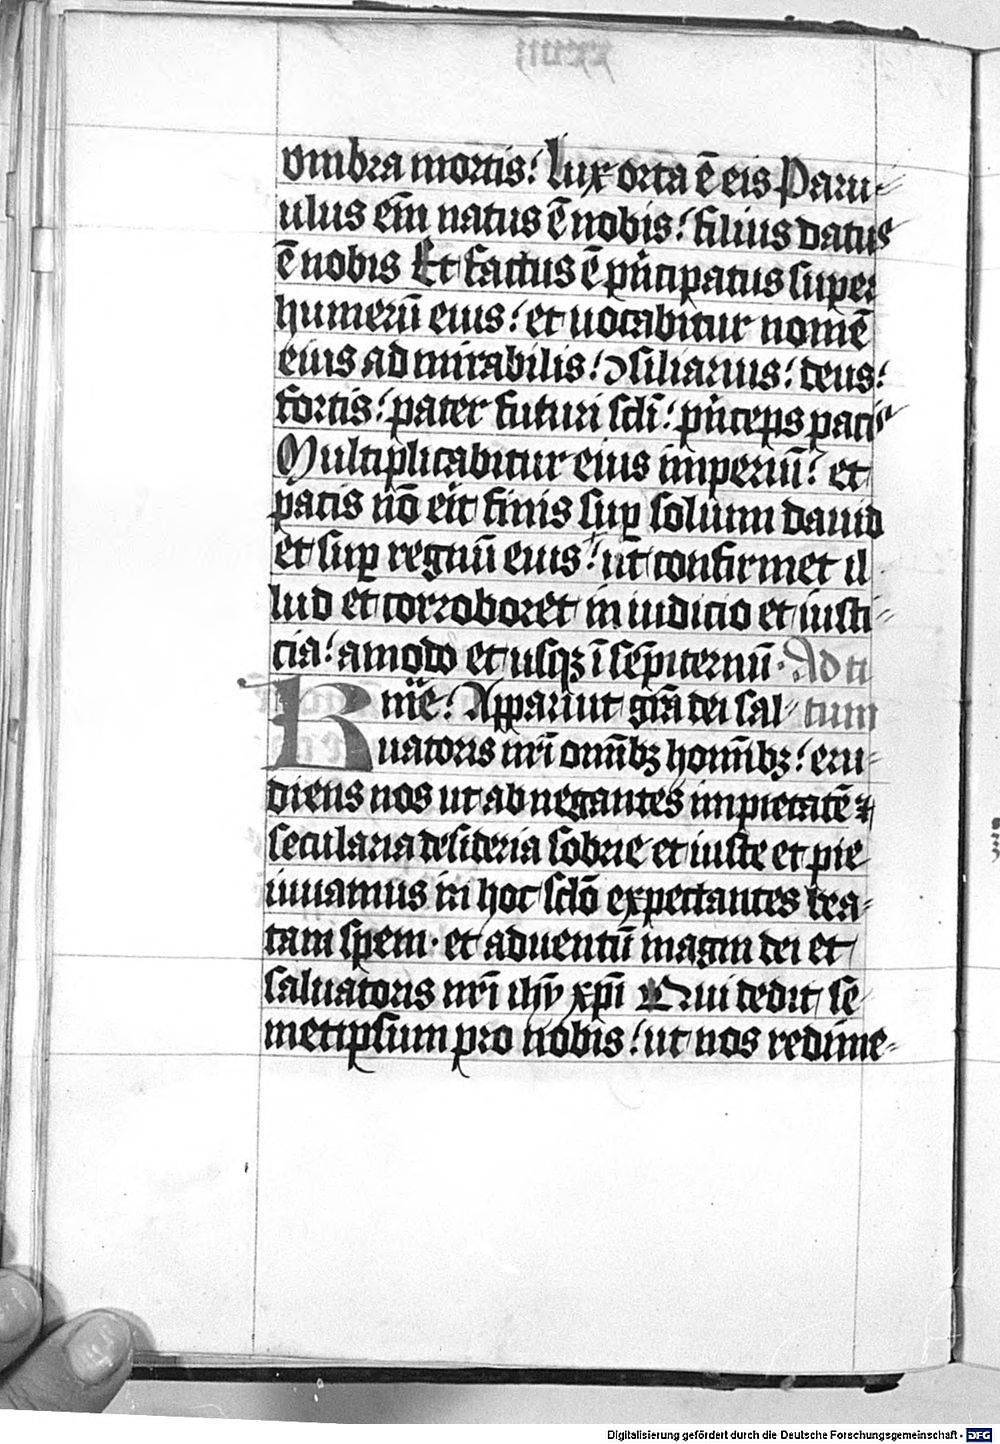 vmbra mortis: lux orta ē eis Paru-
ulus em̄ natus ē nobis: filius datus
ē nobis Et factus ē pn̄cipatus super
humerū eius: et uocabitur nomē
eius admirabilis: ꝯsiliarius: deus:
fortis: pater futuri scl̄i: pn̄ceps paci
Multiplicabitur eius imperiū: et
pacis nō erit finis suꝑ solium dauid
et suꝑ regnū eius: ut confirmet il
lud et corroboret in iudicio et iusti-
cia: amodo et usqꝫ ī sēpiternū. Ad ti
Kme: Apparuit gr̄a dei sal- tum
uatoris nr̄i omībꝫ homībꝫ: eru-
diens nos ut abnegantes impietatē ⁊
secularia desideria sobrie et iuste et pie
uiuamus in hoc scl̄o expectantes bea-
tam spem. et aduentū magni dei et
saluatoris nr̄i ihū xp̄i Qui dedit se-
metipsum pro nobis: ut nos redime-
Digitalisierung gefördert durch die Deutsche Forschungsgemeinschaft - DFG